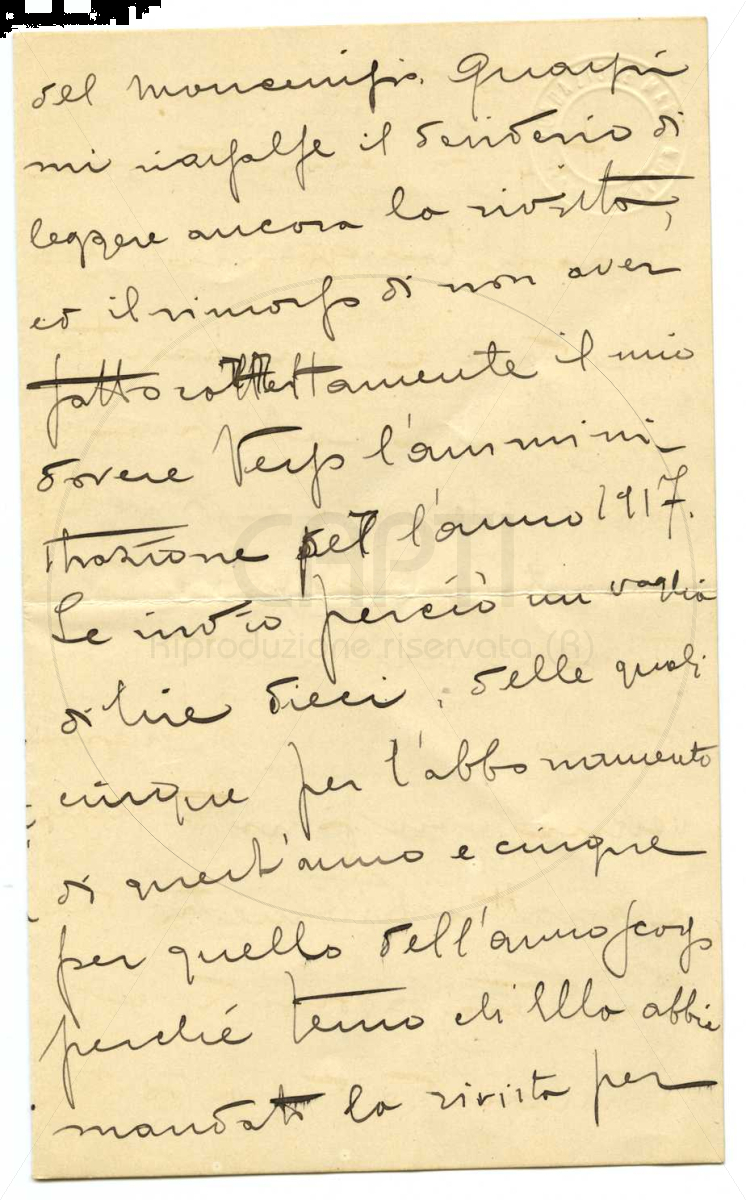 del Moncenisio. Quassù
mi riassalse il desiderio di
leggere ancora la rivista,
ed il rimorso di non aver
fatto rottamente il mio
dovere verso l'ammini-
strazione pel l'anno 1917.
Le invio perciò un vaglia
di lire dieci, delle quali
cinque per l'abbonamento
di quest'anno e cinque
per quello dell'anno scorso
perché temo ch'Ella abbia
mandato la rivista per
CAPTI
Riproduzione riservata (R)